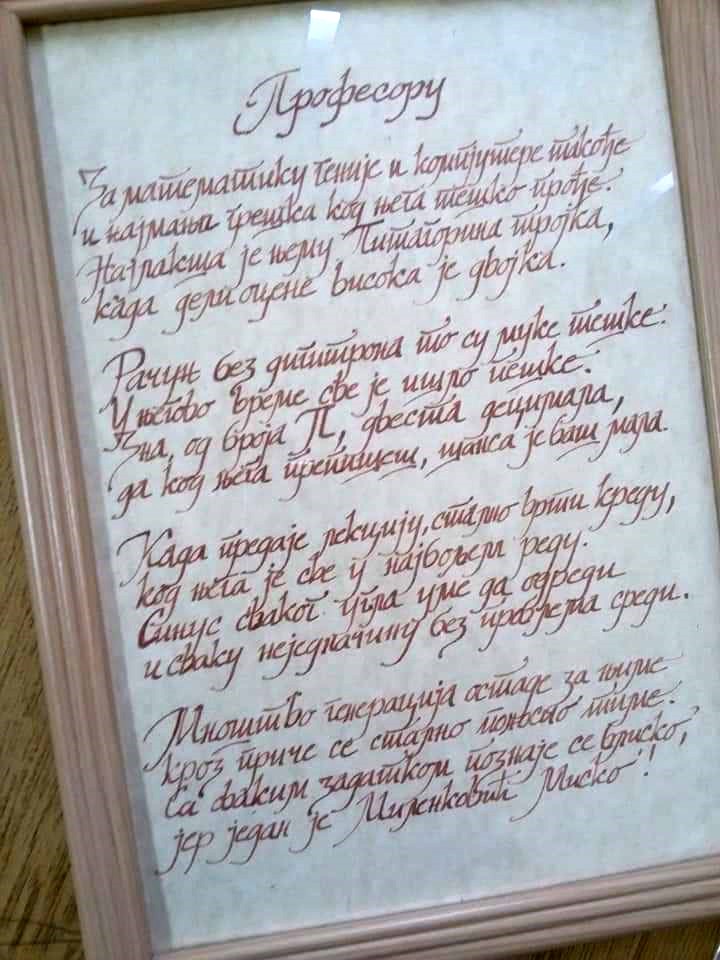 Професору
За математику геније и компјутере такође
и најмања грешка код њега тешко прође.
Најлакша је њему Питагорина тројка,
када дели оцене висока је двојка.
Рачун без дигитрона то су муке тешке.
У његово време све је ишло пешке.
Зна, од броја П, двеста децимала,
да код њега препишеш, шанса је баш мала.
Када предаје лекцију, стално врти креду,
код њега је све у најбољем реду.
Синус сваког угла уме да одреди
и сваку неједначину без проблема среди.
Мноштво генерација остаде за њиме
кроз приче се стално поносио тиме.
Са сваким задатком познаје се блиско,
јер један је Миленковић Миско!!